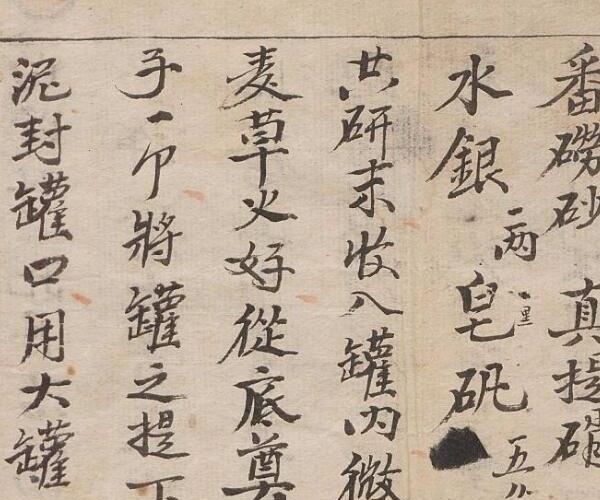 番磠砂 真提硝
水銀一两 皂矾 五
共研末收入罐内微
麦草火好從底
子一个將罐之提下
泥封罐口用大罐